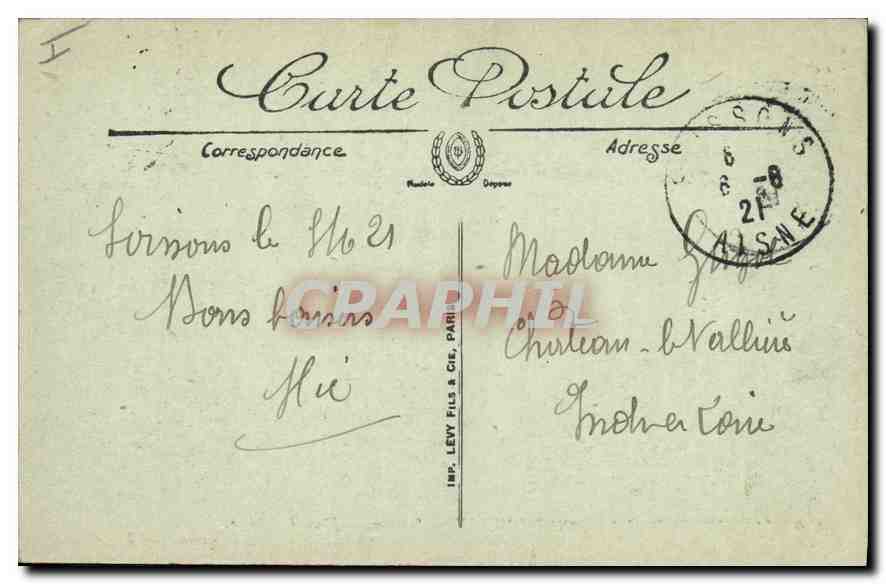 Carte Postale
Correspondance
Adresse
Modèle Déposé
SOISSONS
6
6 -8
21
AISNE
Soissons le 5/6 21
Bons baisers
Madame
à
Château-la-Vallière
Indre et Loire
IMP. LÉVY FILS & CIE, PARIS
CRAPHIL